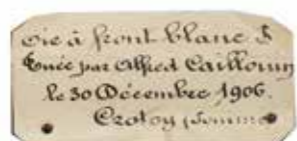 oie à front blanc ♂
Tuée par Alfred Caillouin
le 30 Décembre 1906.
Crotoy (Somme)